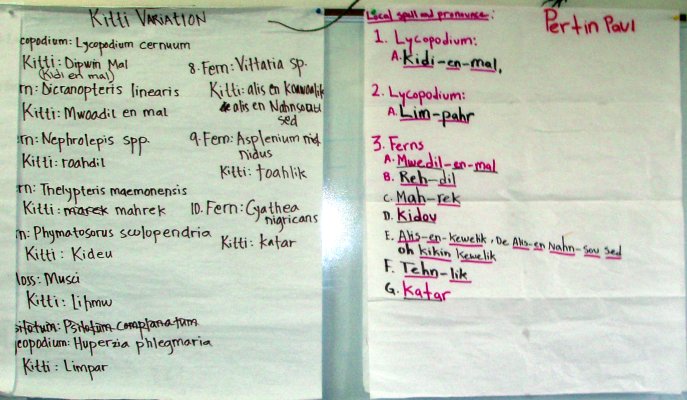 Kitti VARIATION
copodium: Lycopodium cernuum
Kitti: Dipwin Mal
(Kidi en mal)
rn: Dicranopteris linearis
Kitti: Mwoadil en mal
rn: Nephrolepis spp.
Kitti: roahdil
rn: Thelypteris maemonensis
Kitti: marek mahrek
n: Phymatosorus scolopendria
Kitti: Kideu
loss: Musci
Kitti: Lihmw
silotum: Psilotum complanatum
copodium: Huperzia phlegmaria
Kitti: Limpar
8. Fern: Vittaria sp.
Kitti: alis en
alis en Nahnsou
sed
9. Fern: Asplenium nid
nidus
Kitti: toahlik
10. Fern: Cyathea
nigricans
Kitti: katar
Local spell and pronounce:
Pertin Paul
1. Lycopodium:
A. Kidi-en-mal,
2. Lycopodium:
A. Lim-pahr
3. Ferns
A. Mwedil-en-mal
B. Reh-dil
C. Mah-rek
D. Kidou
E. Alis-en-kewelik, De Alis-en Nahn-sou sed
oh kikin kewelik
F. Tehn-lik
G. Katar